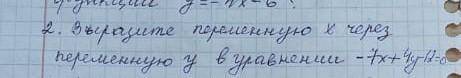 функции y=-7x-6.
2. Выразите переменную x через
переменную y в уравнении -7x+4y-12=0